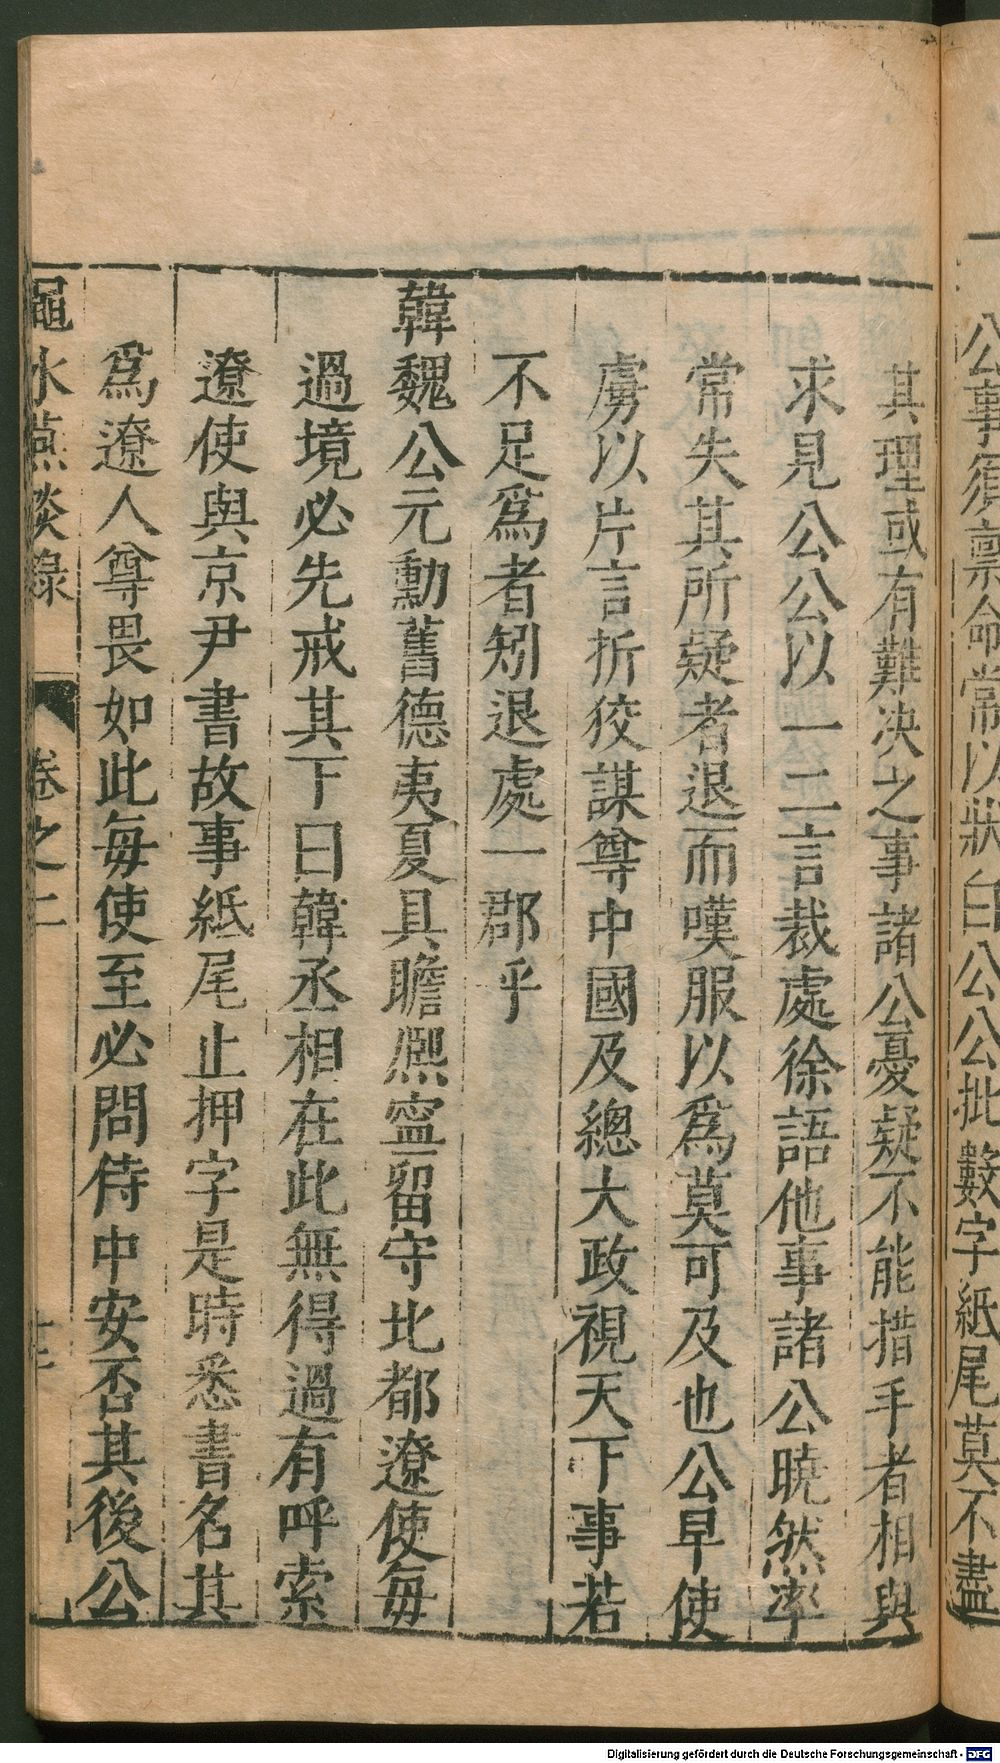 公事須稟命常以狀白公公批數字紙尾莫不盡
其理或有難决之事諸公憂疑不能措手者相與
求見公公以一二言裁處徐語他事諸公曉然率
常失其所疑者退而嘆服以爲莫可及也公早使
虜以片言折狡謀尊中國及總大政視天下事若
不足爲者矧退處一郡乎
韓魏公元勳舊德夷夏具瞻熈寧留守北都遼使每
過境必先戒其下曰韓丞相在此無得過有呼索
遼使與京尹書故事紙尾止押字是時悉書名其
爲遼人尊畏如此每使至必問侍中安否其後公
澠水燕談錄 卷之二
Digitalisierung gefördert durch die Deutsche Forschungsgemeinschaft - DFG